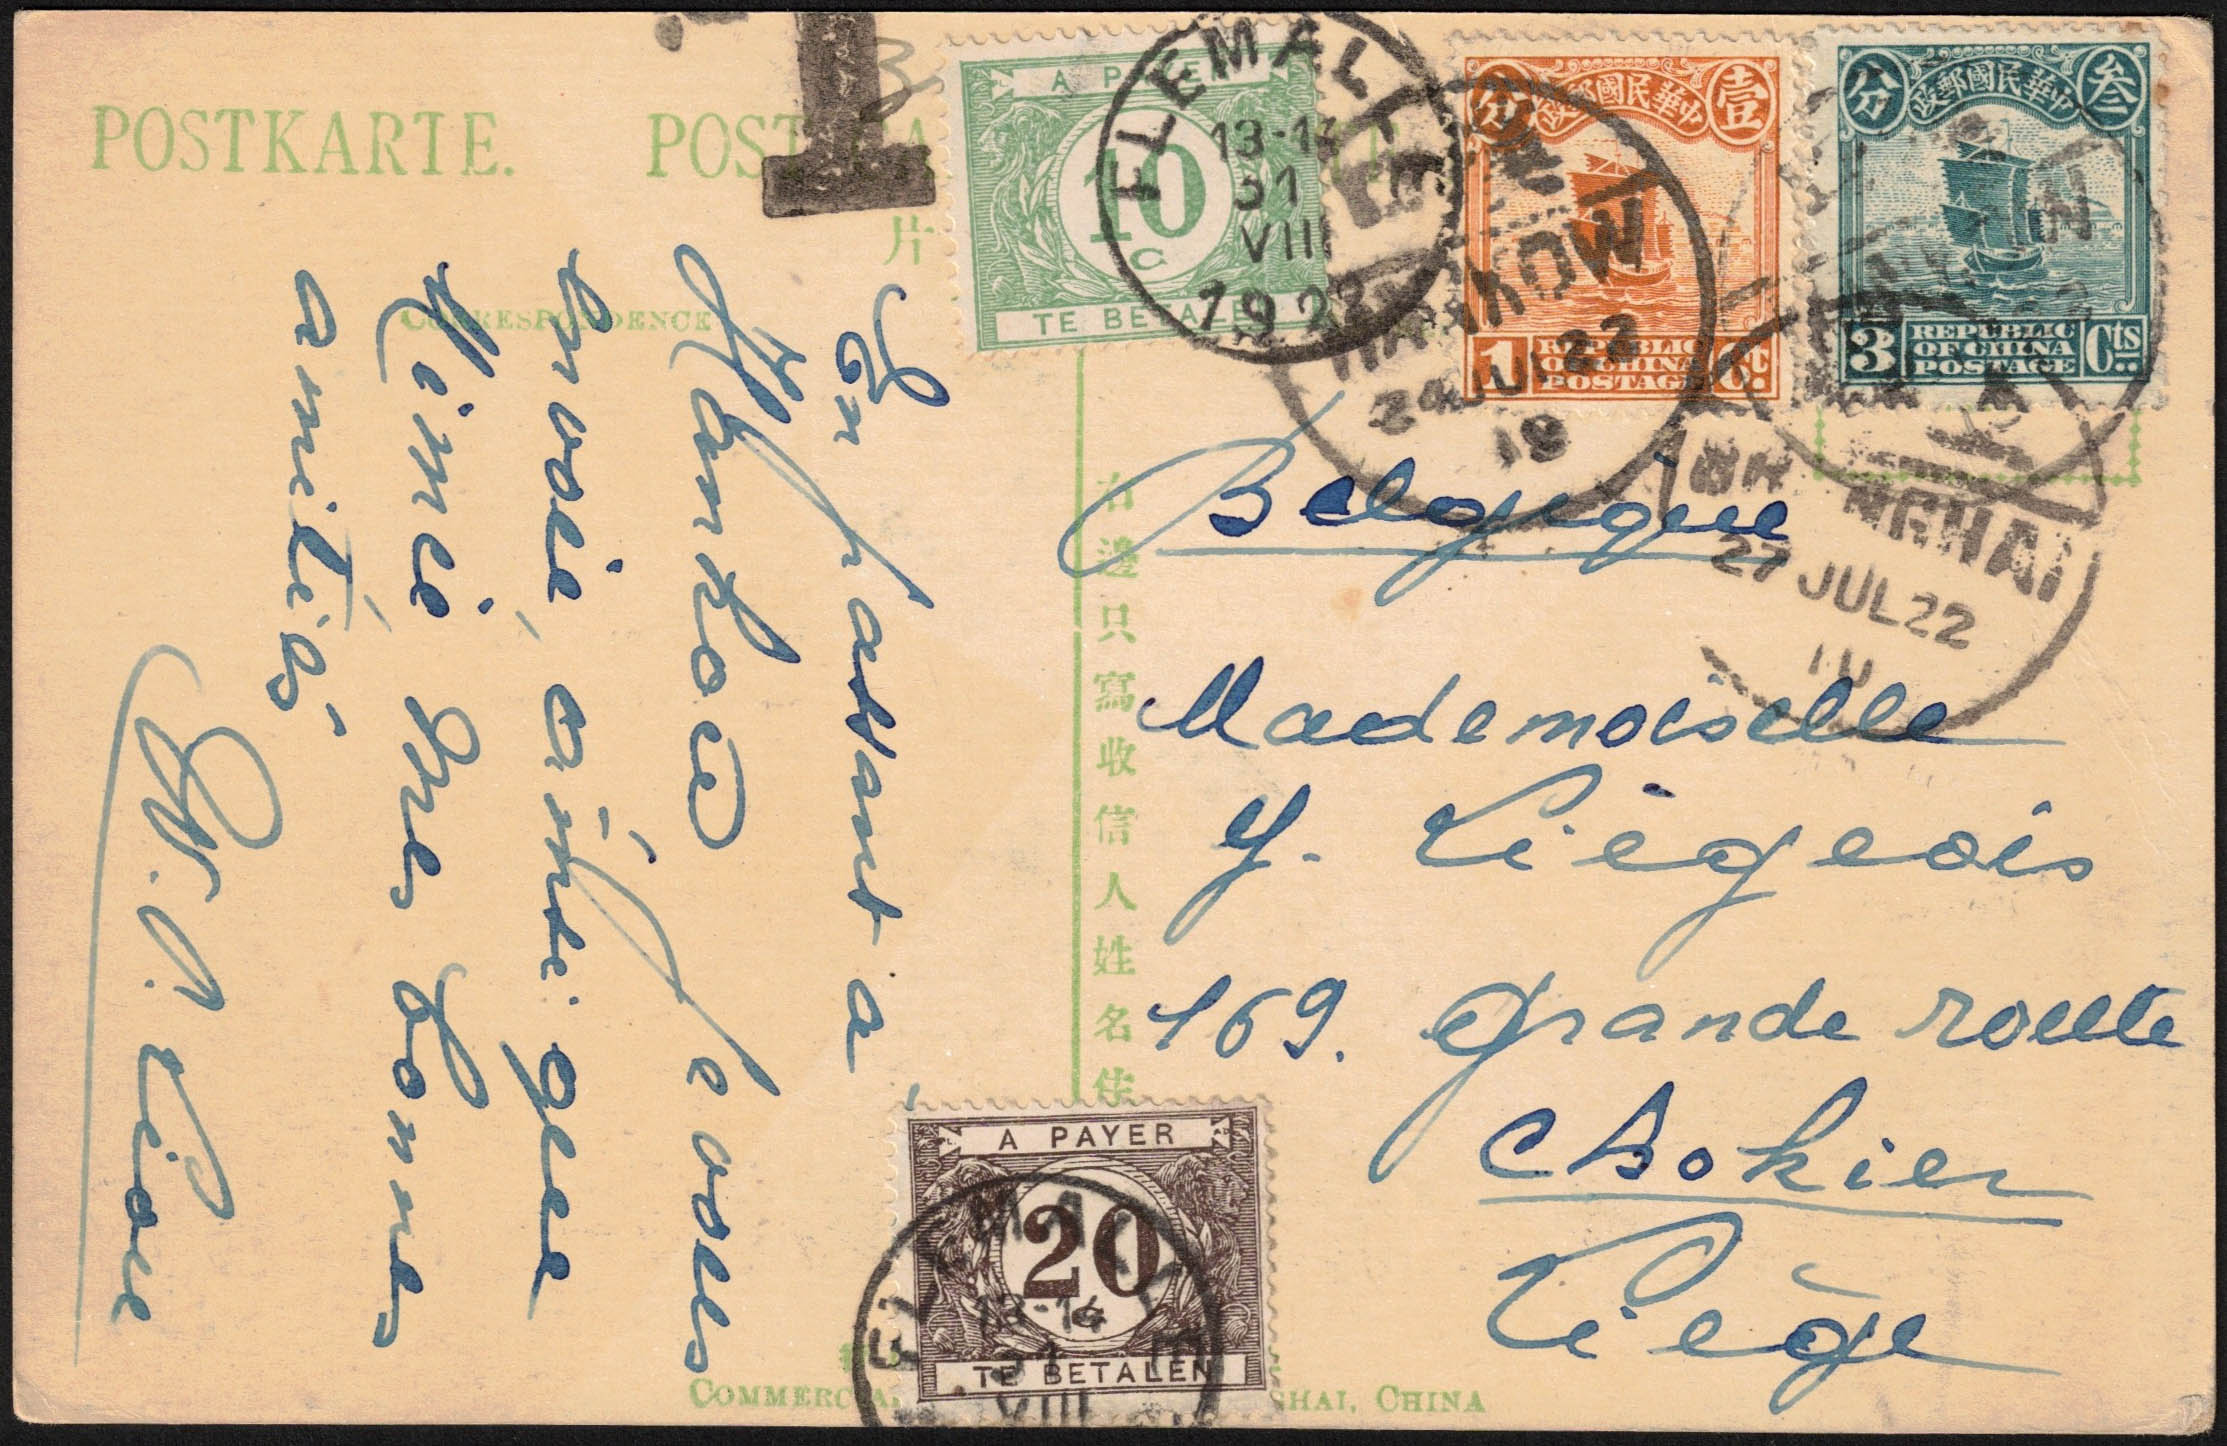 POSTKARTE.
POST CA
片
CORRESPONDENCE
T
A PAYER
10
C
TE BETALEN
FLEMALLE
13-14
31
VIII
1922
中華民國郵政
壹
分
1
REPUBLIC
OF CHINA
POSTAGE
Ct
中華民國郵政
叁
分
3
REPUBLIC
OF CHINA
POSTAGE
Cts
HANKOW
HANKOW
24 JUL 22
18
SHANGHAI
27 JUL 22
10
En passant à
Hankow je vous
envoie, ainsi que
Aimée mes bonnes
amitiés
右邊只寫收信人姓名住
Belgique
Mademoiselle
Y. Liégeois
169. Grande route
Chokier
Liège
A PAYER
20
C
TE BETALEN
FLEMALLE
13-14
31
VIII
COMMERCIA
HAI, CHINA